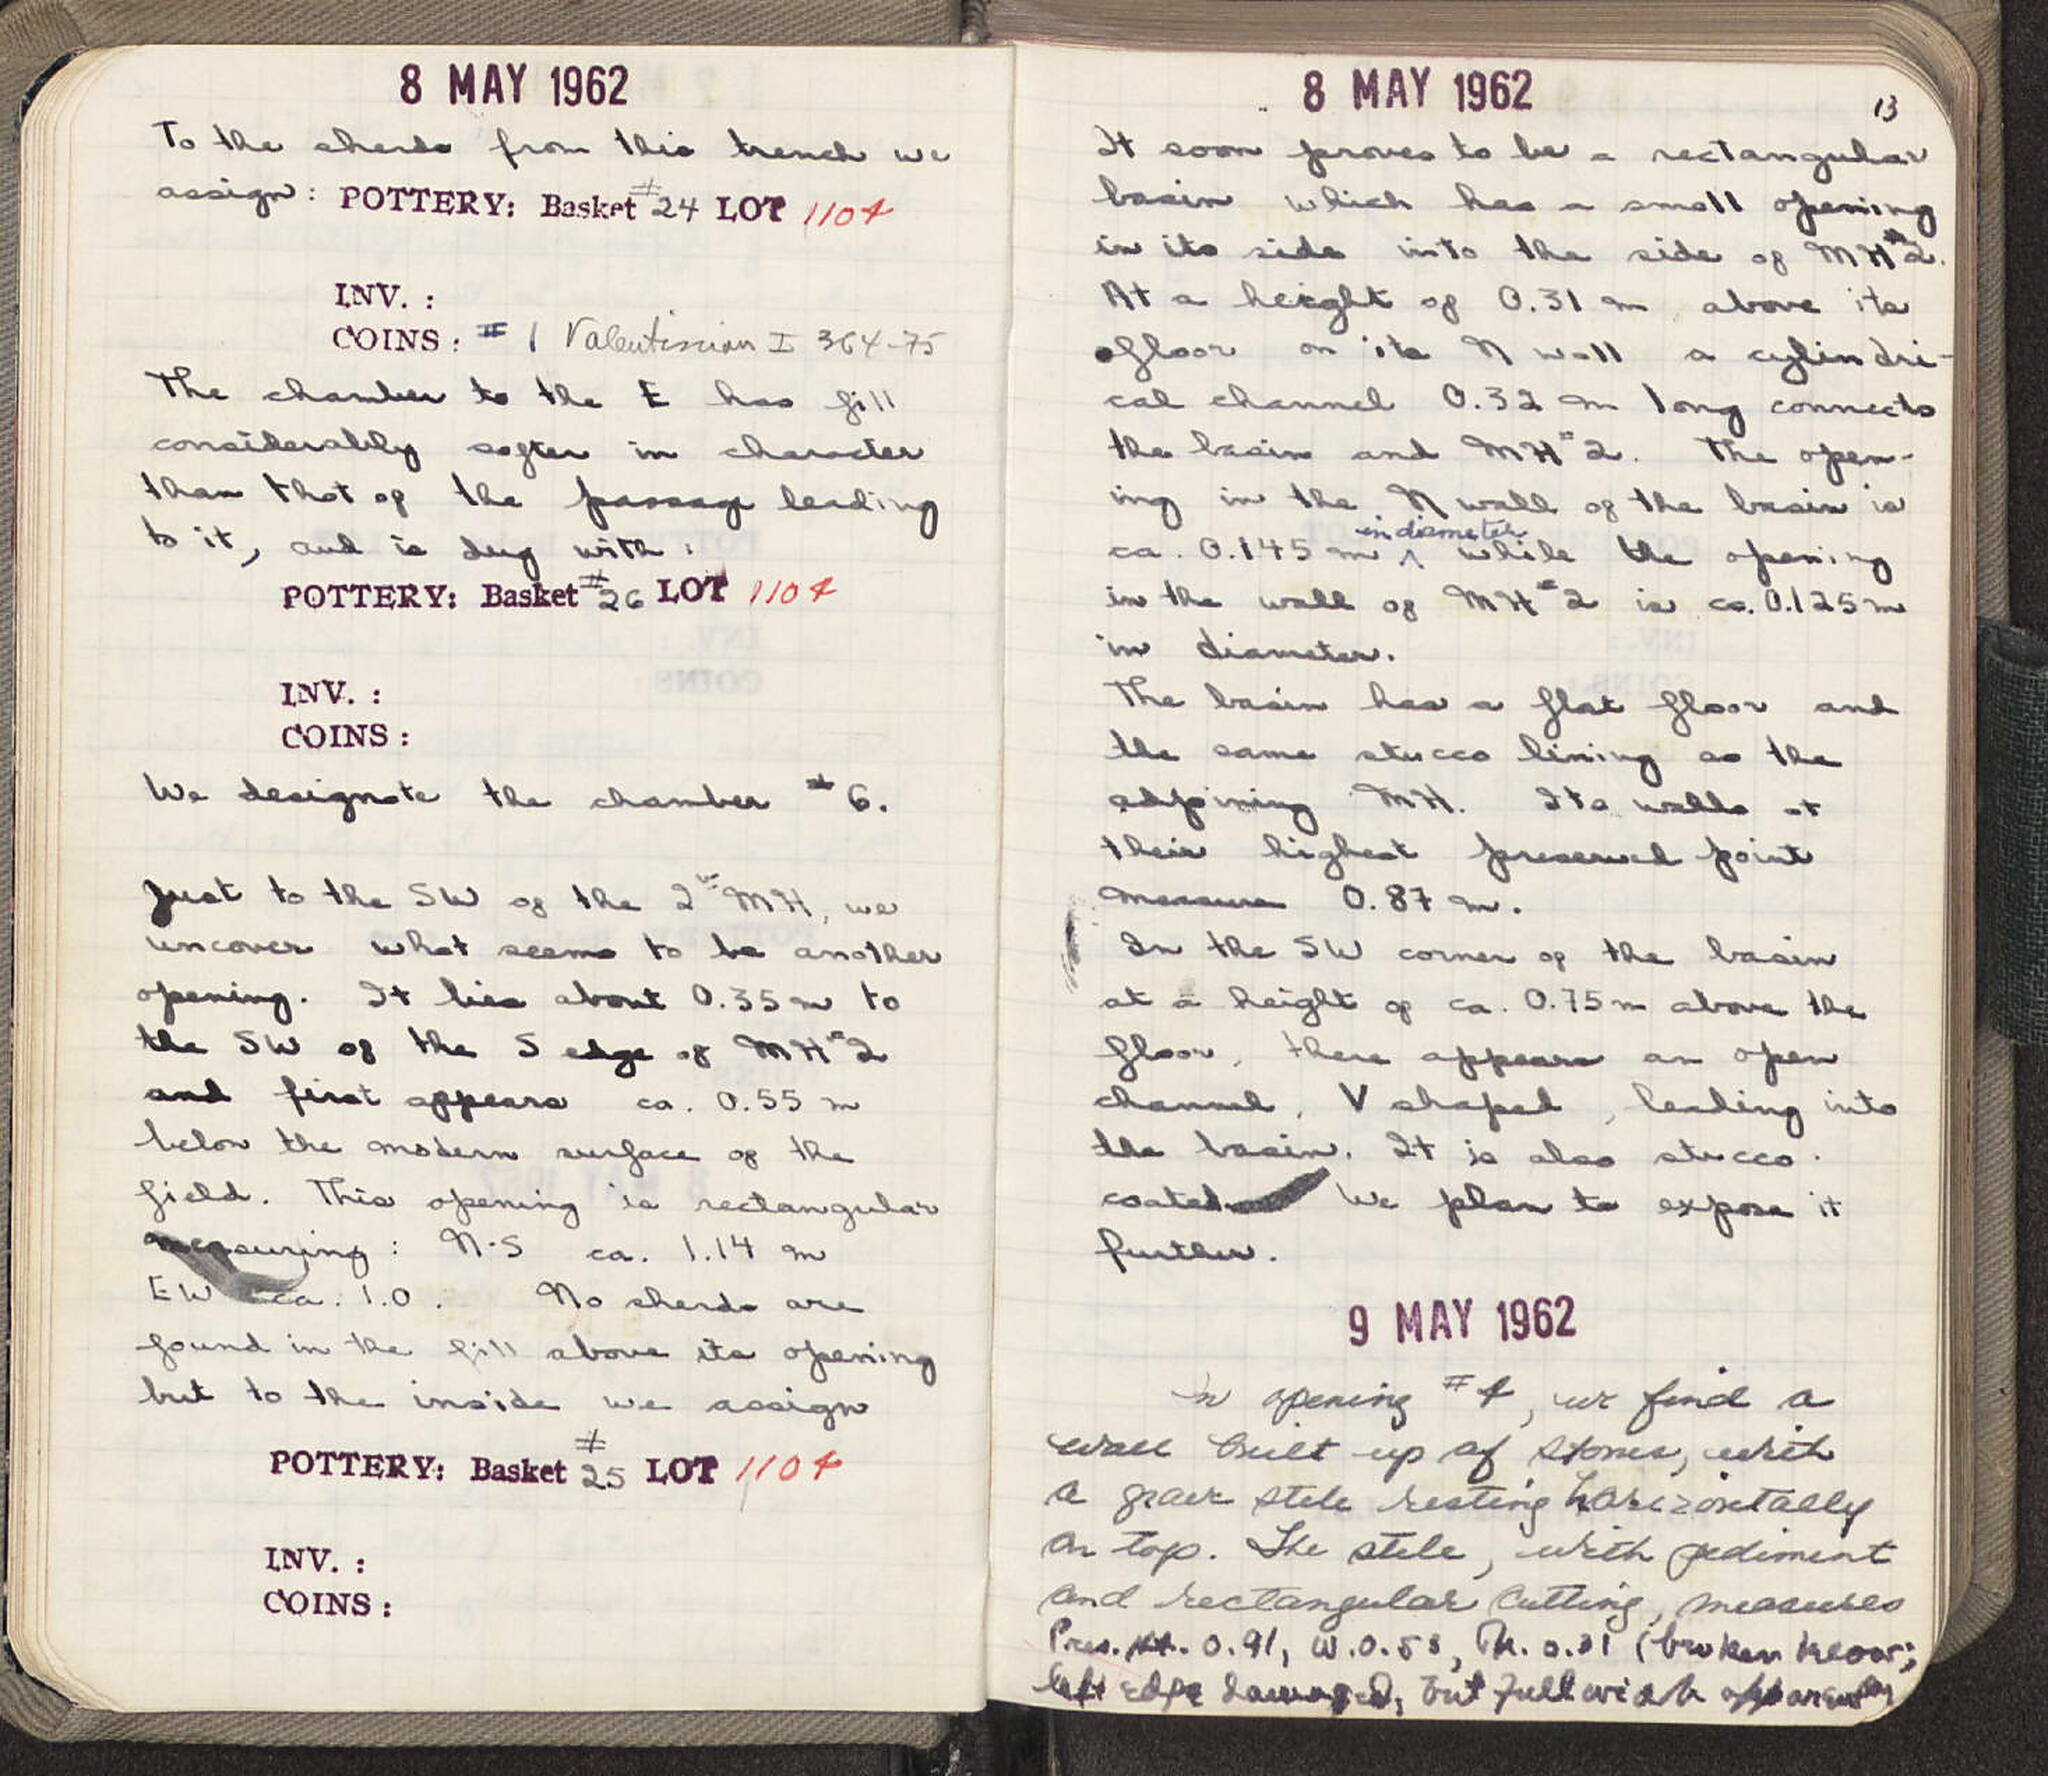 8 MAY 1962
To the sherds from this trench we
assign: POTTERY: Basket #24 LOT 1104
INV. :
COINS: # 1 Valentinian I 364-75
The chamber to the E has fill
considerably softer in character
than that of the passage leading
to it, and is dug with:
POTTERY: Basket #26 LOT 1104
INV. :
COINS:
We designate the chamber #6.
Just to the SW of the 2nd MH, we
uncover what seems to be another
opening. It lies about 0.35 m to
the SW of the S edge of MH#2
and first appears ca. 0.55 m
below the modern surface of the
field. This opening is rectangular
measuring: N-S ca. 1.14 m
EW ca. 1.0. No sherds are
found in the fill above its opening
but to the inside we assign
POTTERY: Basket #25 LOT 1104
INV. :
COINS:
8 MAY 1962
13
It soon proves to be a rectangular
basin which has a small opening
in its side into the side of MH#2.
At a height of 0.31 m above its
floor on its N wall a cylindri-
cal channel 0.32 m long connects
the basin and MH#2. The open-
ing in the N wall of the basin is
ca. 0.145 m in diameter while the opening
in the wall of MH#2 is ca. 0.125 m
in diameter.
The basin has a flat floor and
the same stucco lining as the
adjoining MH. Its walls at
their highest preserved point
measure 0.87 m.
In the SW corner of the basin
at a height of ca. 0.75 m above the
floor, there appears an open
channel, V shaped, leading into
the basin. It is also stucco
coated We plan to expose it
further.
9 MAY 1962
In opening #4, we find a
wall built up of stones, with
a grave stele resting horizontally
on top. The stele, with pediment
and rectangular cutting, measures
Pres. Ht. 0.91, W. 0.53, Th. 0.31 (broken below;
left edge damaged, but full width apparently